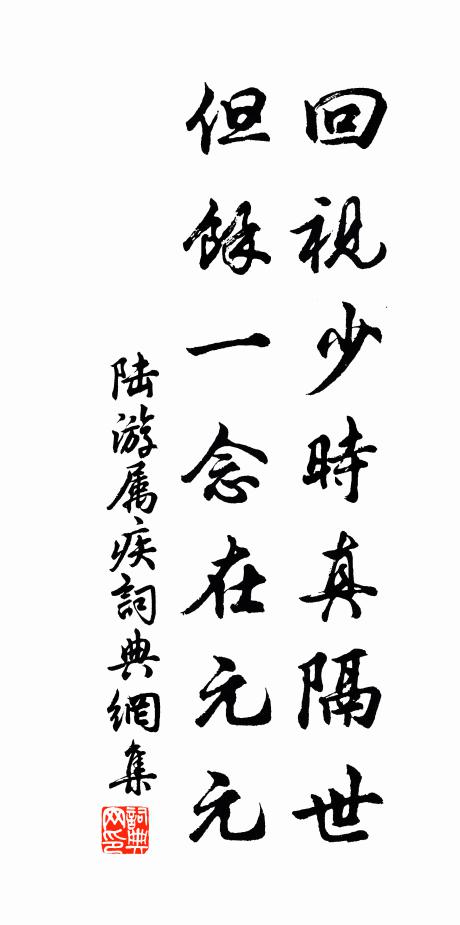 回視少時真隔世
但餘一念在元元
陸游属疾詞典網集
詞典網印